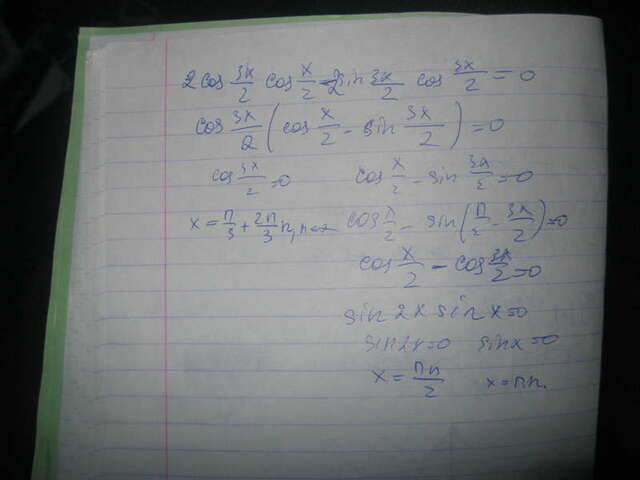 2cos 3x/2 cos x/2 - 2 sin 3x/2 cos 3x/2 = 0
cos 3x/2 (cos x/2 - sin 3x/2) = 0
cos 3x/2 = 0 cos x/2 - sin 3x/2 = 0
x = π/3 + 2π/3 n, n∈z cos x/2 - sin(π/2 - 3x/2) = 0
cos x/2 - cos 3x/2 = 0
sin 2x sin x = 0
sin 2x = 0 sin x = 0
x = πn/2 x = πn.